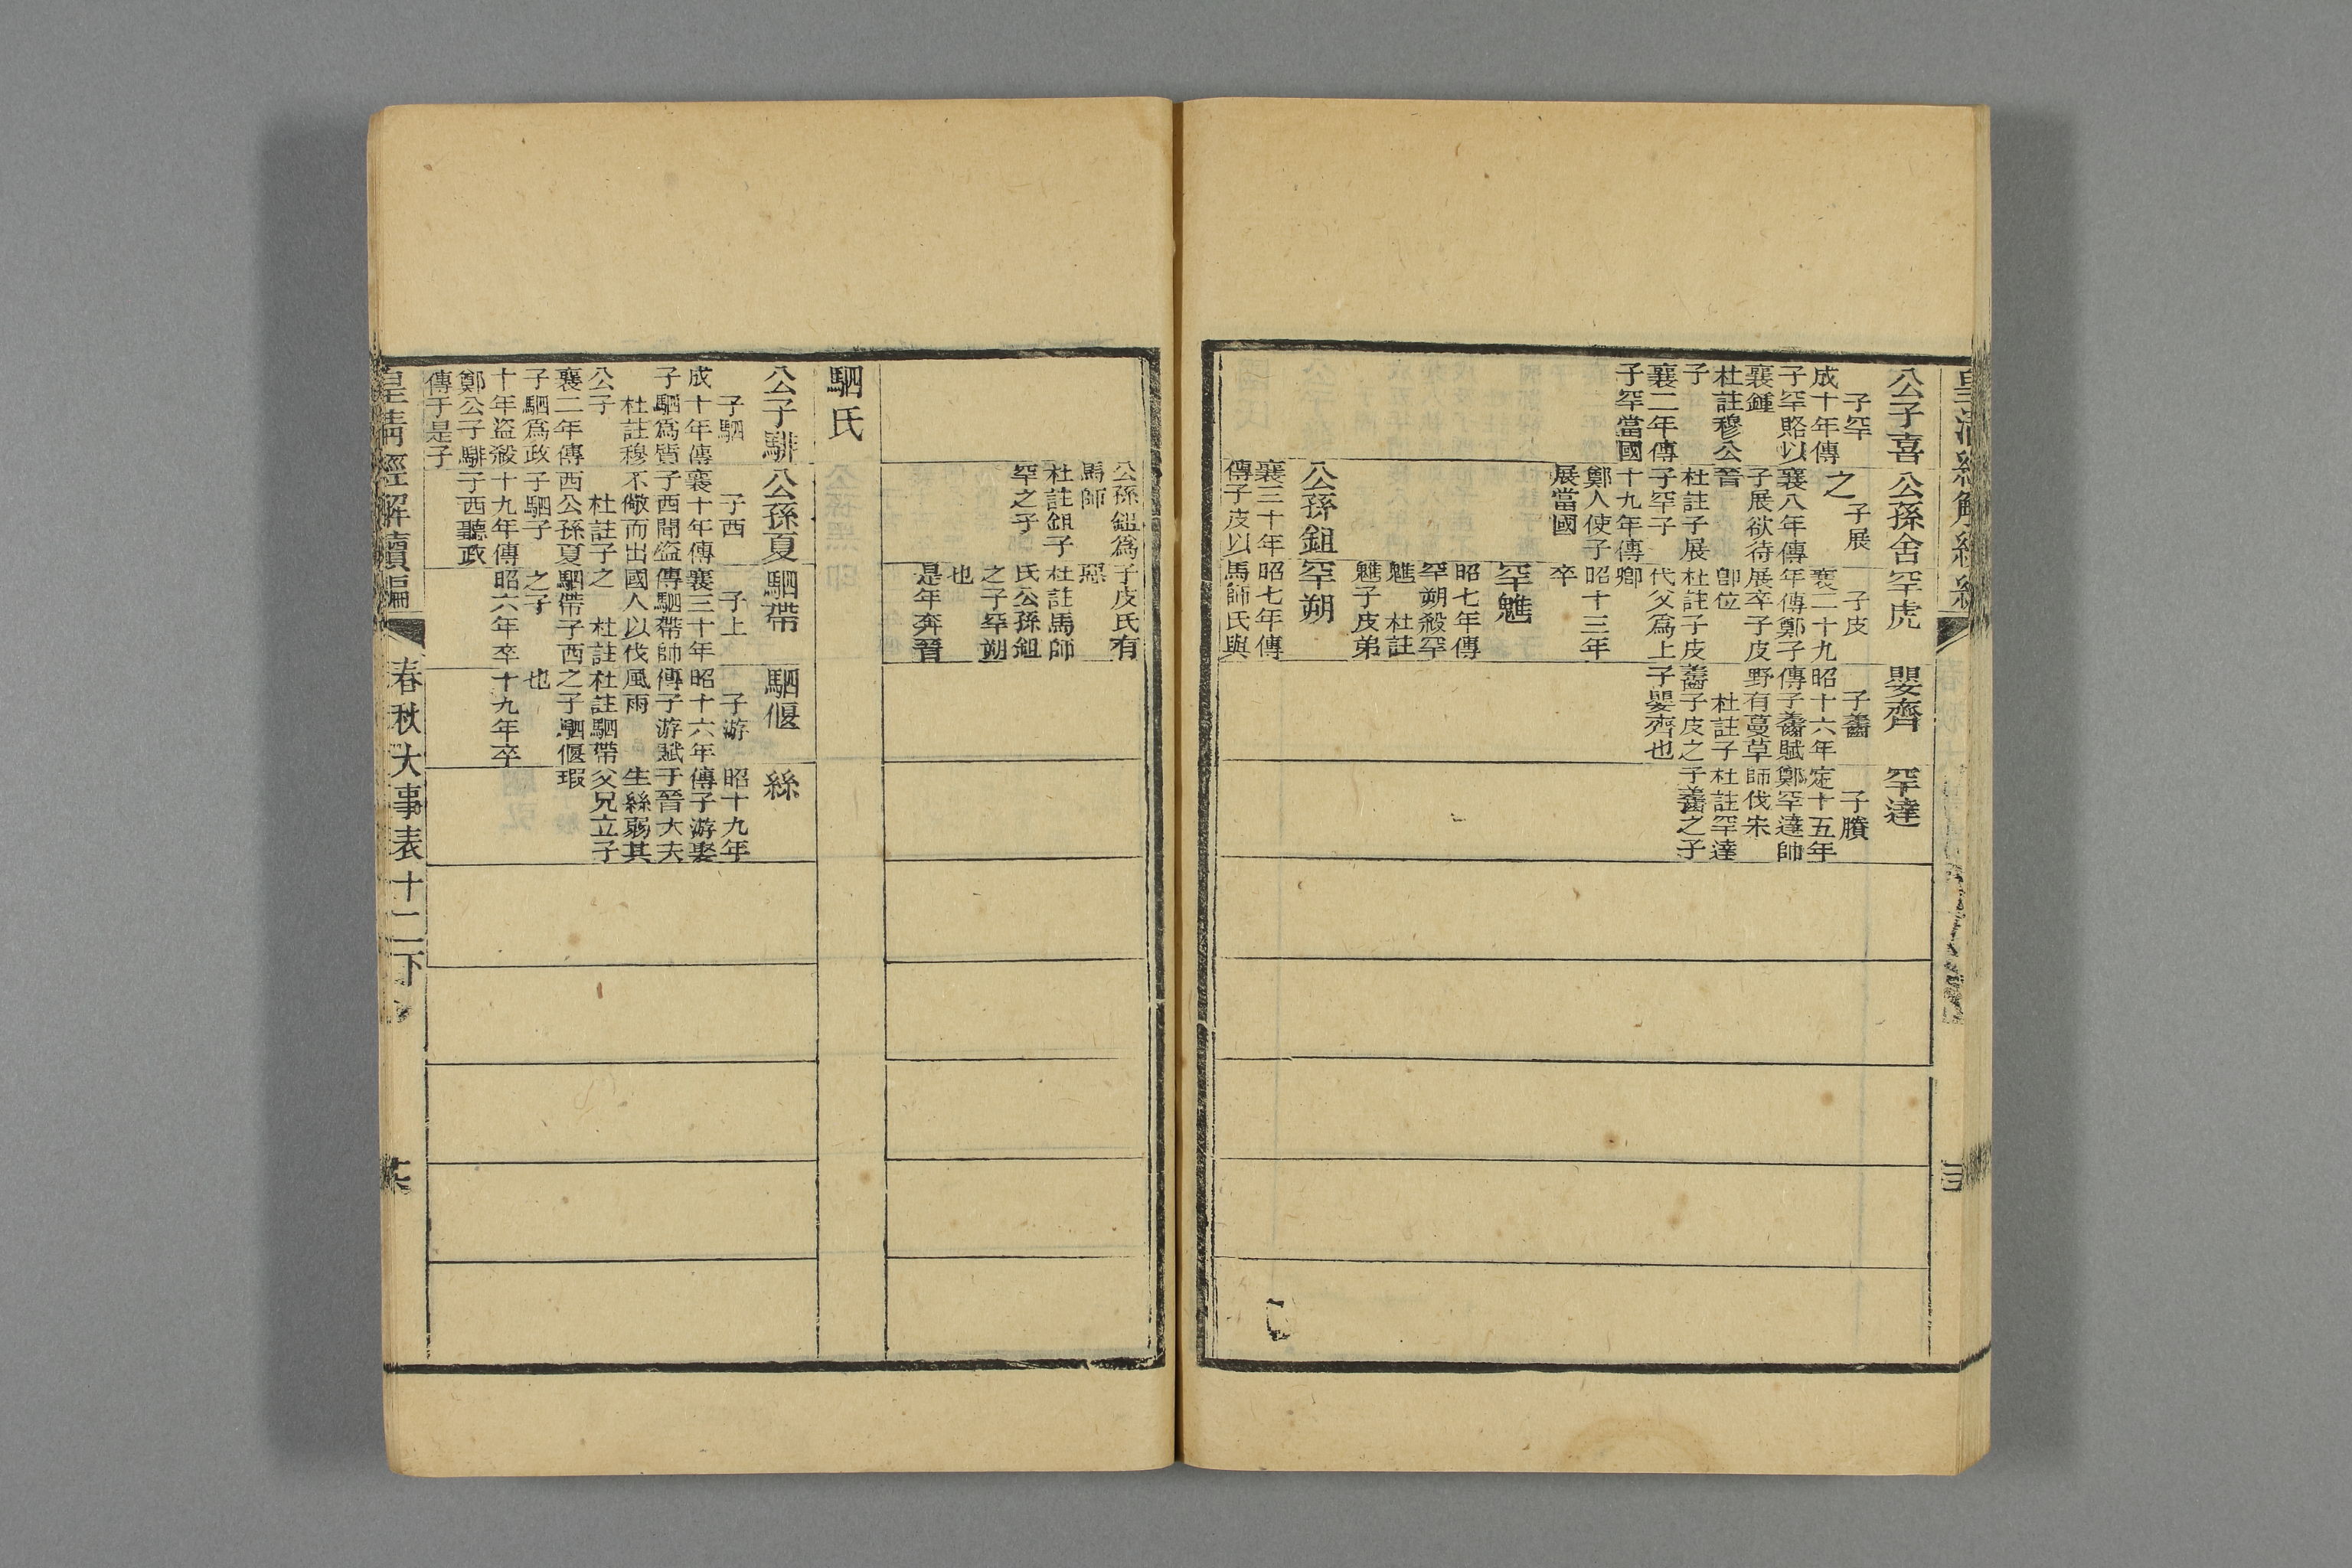 皇清經解續編
公子喜
子罕
成十年傳
子罕賂以
襄鍾
杜註穆公
子
襄二年傳
子罕當國
公孫舍
之 子展
襄八年傳
子展欲待
晉
杜註子展
子罕子
十九年傳
鄭人使子
展當國
罕虎
子皮
襄二十九
年傳鄭子
展卒子皮
卽位
杜註子皮
代父爲上
卿
昭十三年
卒
嬰齊
子齹
昭十六年
傳子齹賦
野有蔓草
杜註子
齹子皮之
子嬰齊也
罕達
子賸
定十五年
鄭罕達帥
師伐宋
杜註罕達
子齹之子
罕魋
昭七年傳
罕朔殺罕
魋 杜註
魋子皮弟
公孫鉏
襄三十年
傳子皮以
罕朔
昭七年傳
馬師氏與
公孫鉏爲
馬師
杜註鉏子
罕之子
子皮氏有
惡
杜註馬師
氏公孫鉏
之子罕朔
也
是年奔晉
駟氏
公子騑
子駟
成十年傳
子駟爲質
杜註穆
公子
襄二年傳
子駟爲政
十年盜殺
鄭公子騑
傳于是子
公孫夏
子西
襄十年傳
子西聞盜
不儆而出
杜註子
西公孫夏
子駟子
十九年傳
子西聽政
駟帶
子上
襄三十年
傳駟帶帥
國人以伐
之 杜註
駟帶子西
之子
昭六年卒
駟偃
子游
昭十六年
傳子游賦
風雨
杜註駟帶
之子駟偃
也
十九年卒
絲
昭十九年
傳子游娶
于晉大夫
生絲弱其
父兄立子
瑕
皇清經解續編
春秋大事表十二下